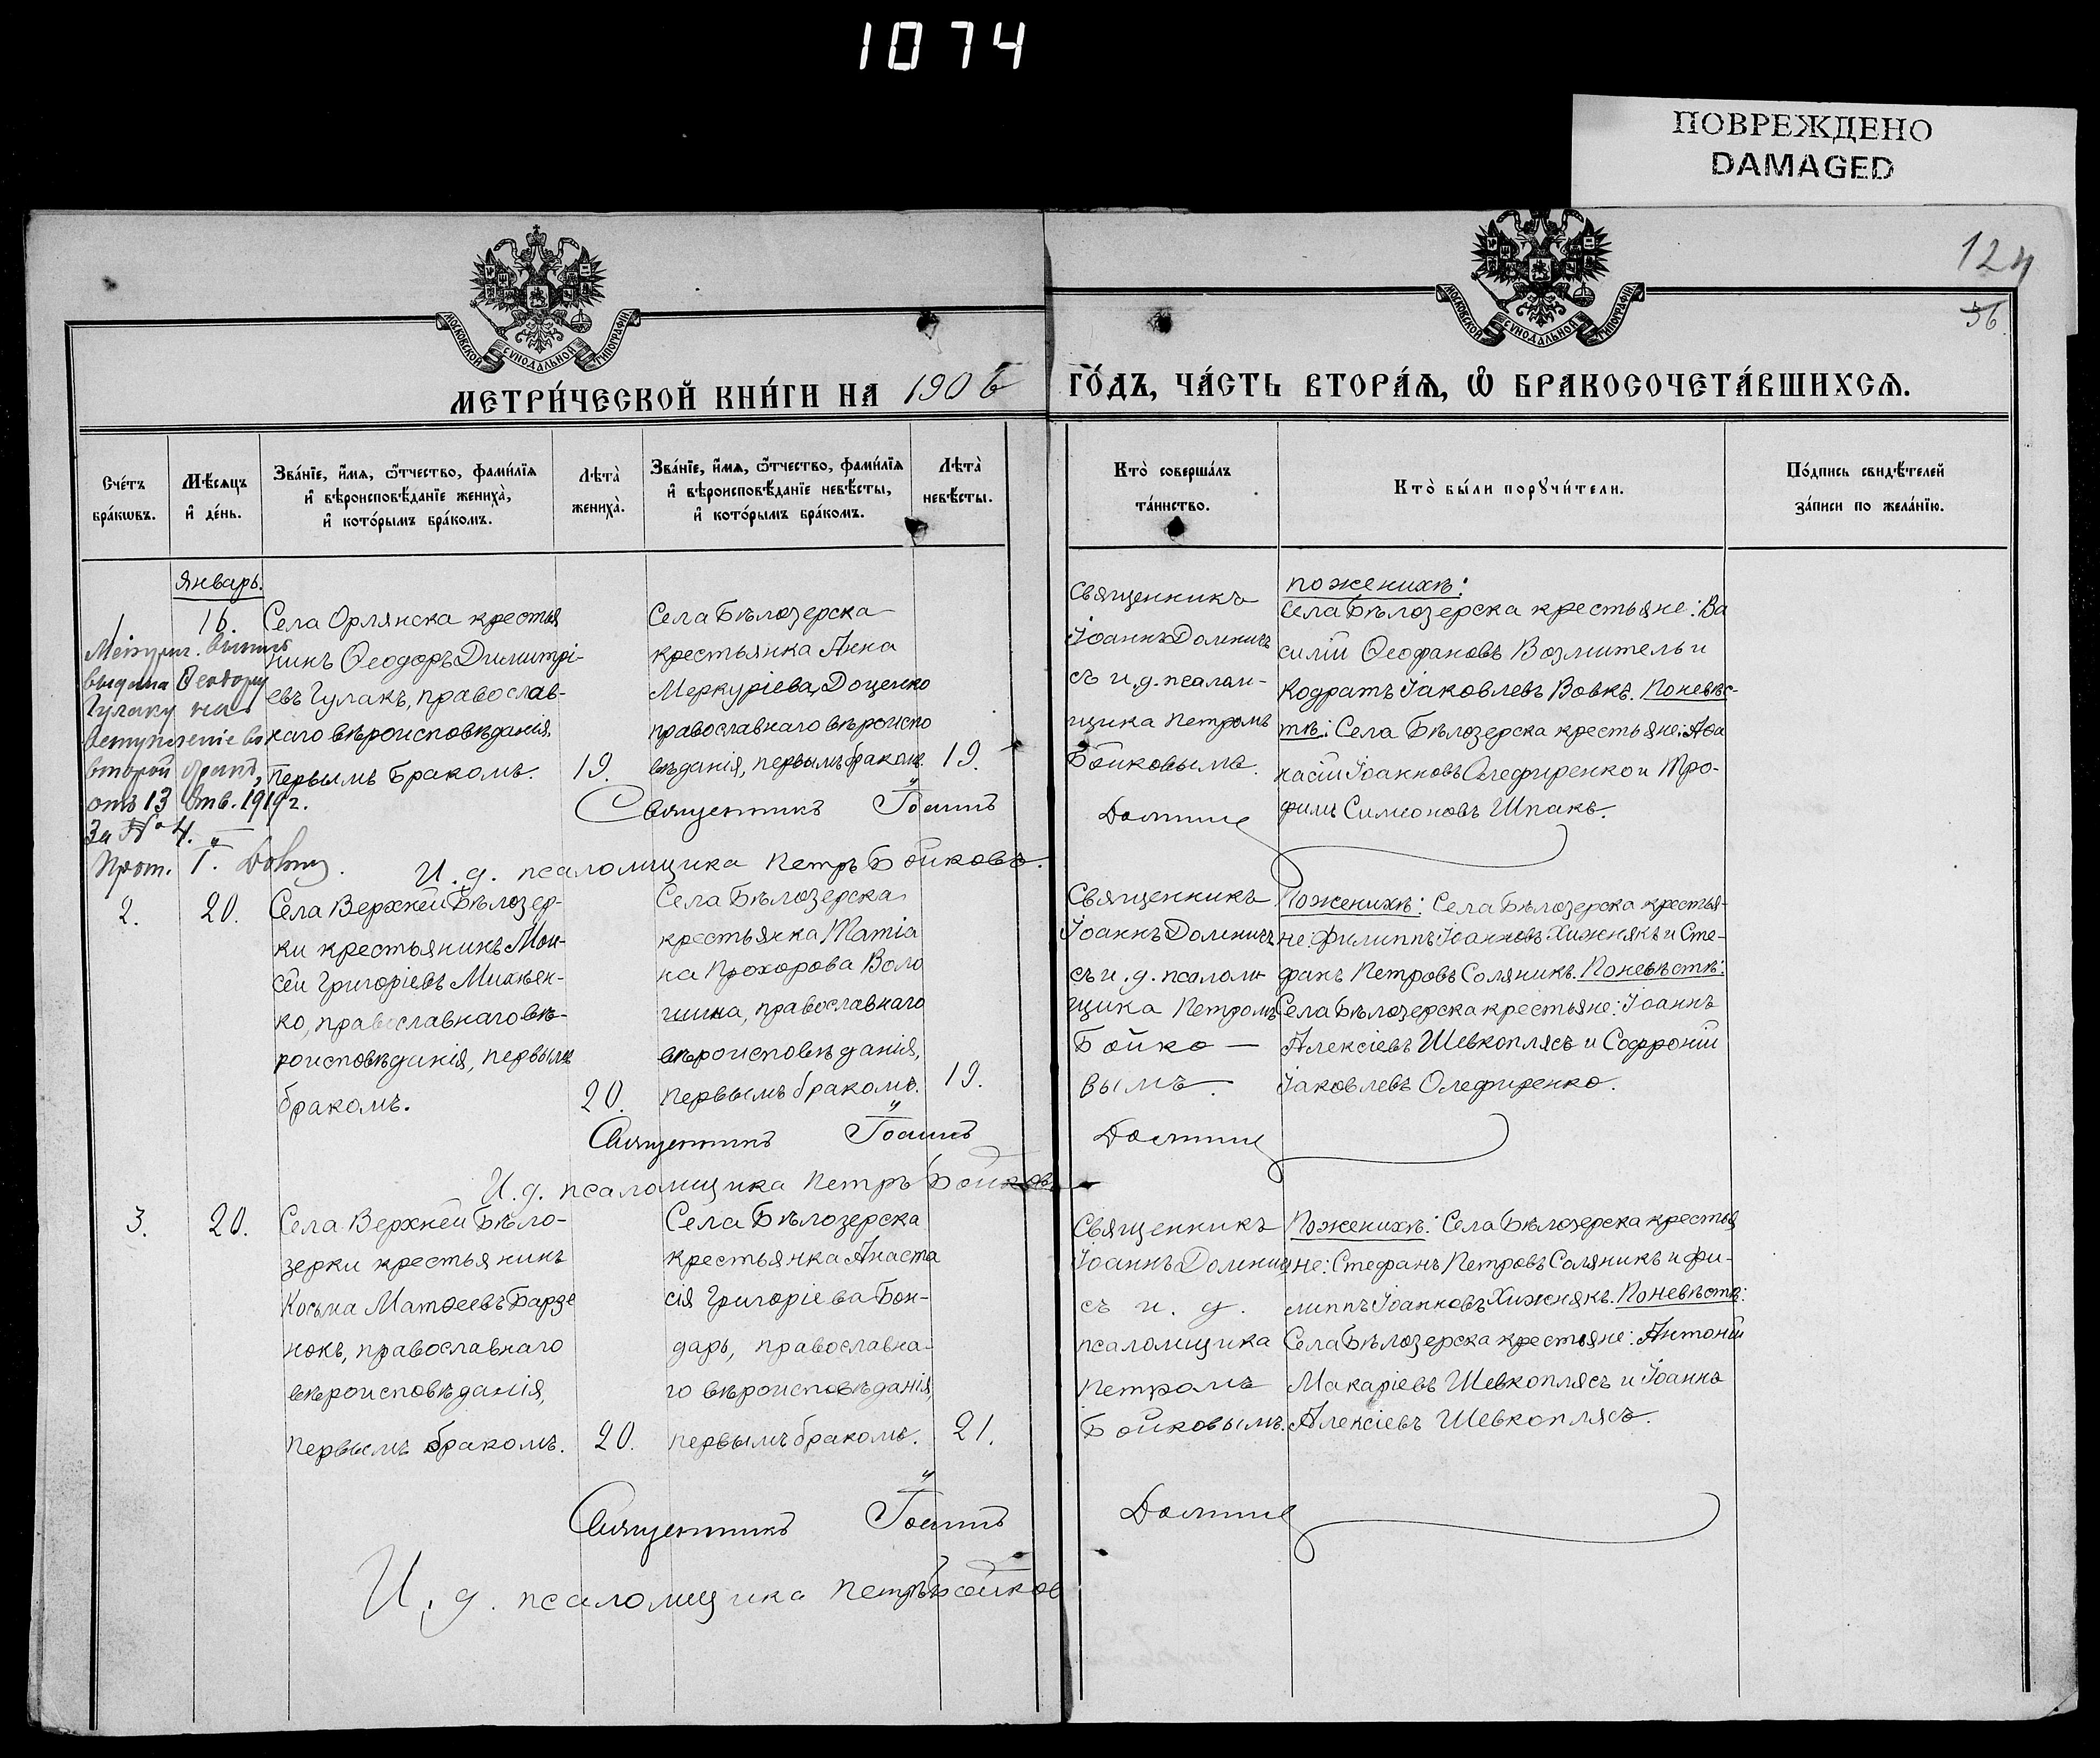 1074
ПОВРЕЖДЕНО
DAMAGED
124
56.
МОСКОВСКОЙ СУНОДАЛЬНОЙ ТИПОГРАФІИ
МОСКОВСКОЙ СУНОДАЛЬНОЙ ТИПОГРАФІИ
МЕТРИ́ЧЕСКОЙ КНИ́ГИ НА 1906 ГО́ДЪ, ЧА́СТЬ ВТОРА́Ѧ, Ѽ БРАКОСОЧЕТА́ВШИХСѦ.
Сче́тъ
бра́кѡвъ.
Мѣ́сѧцъ
и҆ де́нь.
Зва́нїе, и҆́мѧ, ѻ҆́тчество, фами́лїѧ
и҆ вѣроисповѣ́данїе жениха̀,
и҆ кото́рымъ бра́комъ.
Лѣта̀
жениха̀.
Зва́нїе, и҆́мѧ, ѻ҆́тчество, фами́лїѧ
и҆ вѣроисповѣ́данїе невѣ́сты,
и҆ кото́рымъ бра́комъ.
Лѣта̀
невѣ́сты.
Кто̀ соверша́лъ
та́инство.
Кто̀ бы́ли порꙋчи́тели.
По́дпись свидѣ́телей
за́писи по жела́нїю.
Январь.
1
16.
Села Орлянска крестья
нинъ Ѳеодоръ Димитрі-
евъ Гулакъ, православ-
наго вѣроисповѣданія,
первымъ бракомъ.
19.
Села Бѣлозерска
крестьянка Анна
Меркуріева Доценко
православнаго вѣроиспо
вѣданія, первымъ браком.
19.
Священникъ
Іоаннъ Долиничъ
съ и. д. псалом-
щика Петромъ
Бойковымъ.
по женихѣ:
Села Бѣлозерска крестьяне: Ва
силій Ѳеофановъ Возмитель и
Кодратъ Іаковлевъ Вовкъ. По невѣс-
тѣ: Села Бѣлозерска крестьяне: Аѳа
насій Іоанновъ Олефиренко и Тро-
фимъ Симеоновъ Шпакъ.
выдана Ѳеодору
Гулаку на
вступленіе во
второй бракъ,
отъ 13 1919 г.
За № 4.
Прот. І.
Священникъ Іоаннъ Долинич
И. д. псаломщика Петръ Бойковъ.
2.
20.
Села Верхней Бѣлозер-
ки крестьянинъ Мои-
сей Григоріевъ Михнен-
ко, православнаго вѣ-
роисповѣданія, первымъ
бракомъ.
20.
Села Бѣлозерска
крестьянка Татіа
на Прохорова Воло
шина, православнаго
вѣроисповѣданія,
первымъ бракомъ.
19.
Священникъ
Іоаннъ Долиничъ
съ и. д. псалом-
щика Петромъ
Бойко-
вымъ.
По женихѣ: Села Бѣлозерска крестья-
не: Филиппъ Іоанновъ Хижнякъ и Сте-
фанъ Петровъ Соляникъ. По невѣстѣ:
Села Бѣлозерска крестьяне: Іоаннъ
Алексіевъ Шевкоплясъ и Софроній
Іаковлевъ Олефиренко.
Священникъ Іоаннъ Долинич
И. д. псаломщика Петръ Бойковъ
3.
20.
Села Верхней Бѣло-
зерки крестьянинъ
Косьма Матѳеевъ Барзе
нокъ, православнаго
вѣроисповѣданія,
первымъ бракомъ.
20.
Села Бѣлозерска
крестьянка Анаста
сія Григоріева Бон-
дарь, православна-
го вѣроисповѣданія,
первымъ бракомъ.
21.
Священникъ
Іоаннъ Долинич
съ и. д.
псаломщика
Петромъ
Бойковымъ.
По женихѣ: Села Бѣлозерска крестья
не: Стефанъ Петровъ Соляникъ и Фи-
липпъ Іоанновъ Хижнякъ. По невѣстѣ:
Села Бѣлозерска крестьяне: Антоній
Макаріевъ Шевкоплясъ и Іоаннъ
Алексіевъ Шевкоплясъ.
Священникъ Іоаннъ Долинич
И. д. псаломщика Петръ Бойков